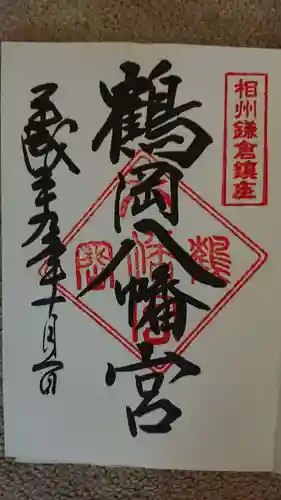 相州鎌倉鎮座
鶴岡八幡宮
平成二十九年十一月一日